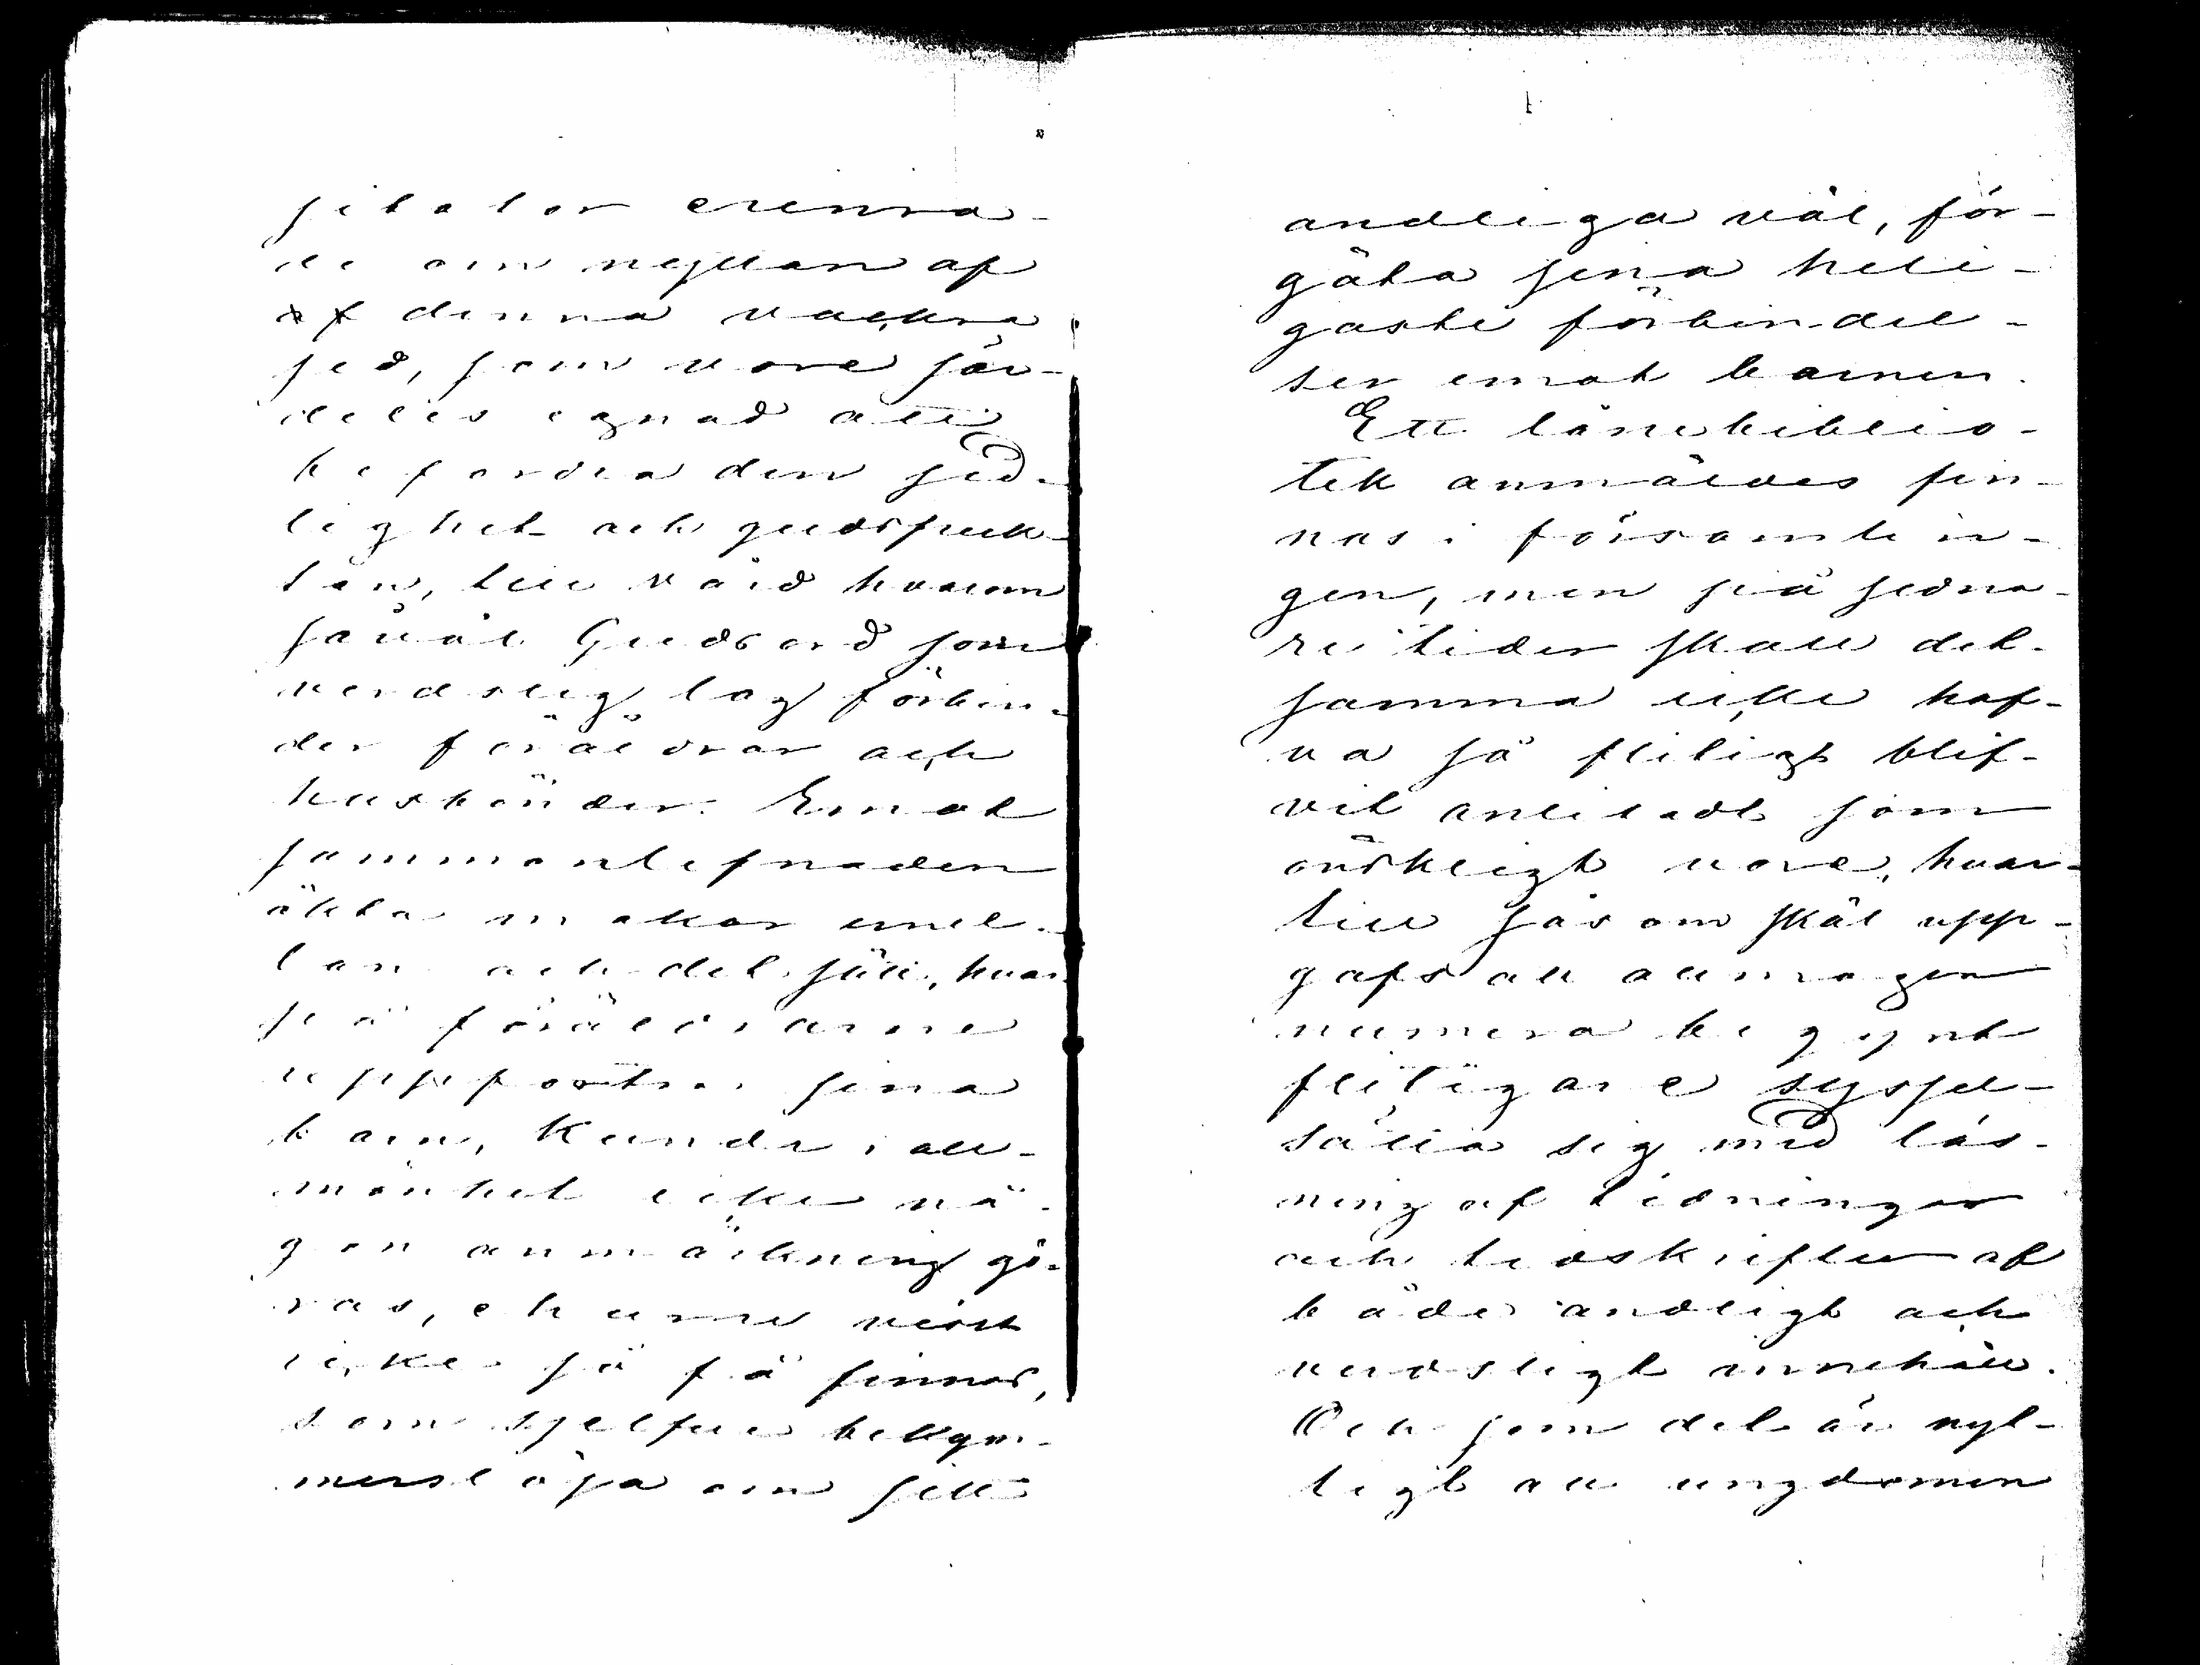 sitator erinra-
de om nyttan af
af denna vackra
sed, som vore sär-
deles egnad att
befordra den sed-
lighet och gudsfruk-
tan, till vård hvarom
såväl Guds ord som
verdslig lag förbin-
der föräldrar och
husbönder. Emot
sammanlefnaden
äkta makar emel-
lan och det sätt, hvar-
på föräldrarne
uppfostra sina
barn, kunde i all-
mänhet icke nå-
gon anmärkning gö-
ras, ehuru visst
icke så få finnas,
som sjelfve bekym-
merslösa om sitt
andliga väl, för-
gäta sina heli-
gaste förbindel-
ser emot barnen.
Ett lånebiblio-
tek anmäldes fin-
nas i församlin-
gen, men på sedna-
re tider skall det-
samma icke haf-
va så flitigt blif-
vit anlitadt som
önskligt vore, hvar-
till såsom skäl upp-
gafs att allmogen
numera begynt
flitigare syssel-
sätta sig med läs-
ning af tidningar
och tidskrifter af
både andligt och
verdsligt innehåll.
Och som det är nyt-
tigt att ungdomen